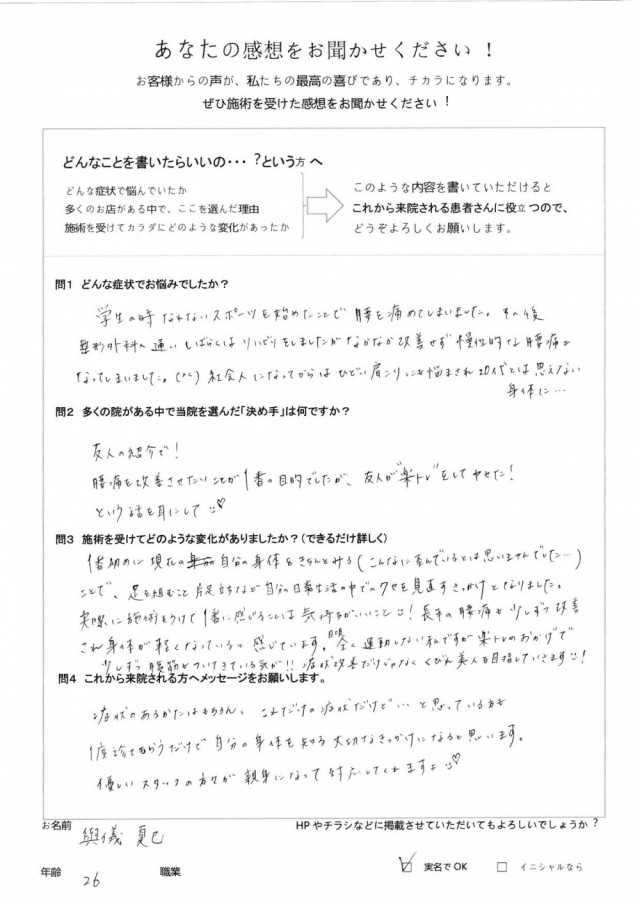 あなたの感想をお聞かせください!
お客様からの声が、私たちの最高の喜びであり、チカラになります。
ぜひ施術を受けた感想をお聞かせください!
どんなことを書いたらいいの・・・?という方 へ
どんな症状で悩んでいたか
多くのお店がある中で、ここを選んだ理由
施術を受けてカラダにどのような変化があったか
このような内容を書いていただけると
これから来院される患者さんに役立つので、
どうぞよろしくお願いします。
問1 どんな症状でお悩みでしたか?
学生の時なれないスポーツを始めたことで腰を痛めてしまいました。その後
整形外科へ通いしばらくはリハビリをしましたがなかなか改善せず慢性的な腰痛に
なってしまいました。社会人になってからはひどい肩こりにも悩まされ20代とは思えない
身体に…
問2 多くの院がある中で当院を選んだ「決め手」は何ですか?
友人の紹介で!
腰痛を改善させたいことが1番の目的でしたが、友人が"楽トレ"をしてやせた!
という話を耳にして
問3 施術を受けてどのような変化がありましたか?(できるだけ詳しく)
1番初めに現在の自分の身体をきちんとみる(こんなに歪んでいるとは思いませんでした…)
ことで、足を組むこと片足立ちなど自分の日常生活の中でのクセを見直すきっかけとなりました。
実際に施術をうけて1番に感じることは気持ちがいいこと!長年の腰痛も少しずつ改善
され身体が軽くなっていると感じています。日頃全く運動しない私ですが楽トレのおかげで
少しずつ腹筋がついてきている気が!!症状改善だけじゃなくくびれ美人も目指していきます!
問4 これから来院される方へメッセージをお願いします。
症状のあるかたはもちろん、これだけの症状だけど…と思っている方も
1度診てもらうだけで自分の身体を知る大切なきっかけになると思います。
優しいスタッフの方々が親身になって対応してくれますよ
お名前 與儀 夏己
HPやチラシなどに掲載させていただいてもよろしいでしょうか?
年齢 26 職業 実名でOK イニシャルなら